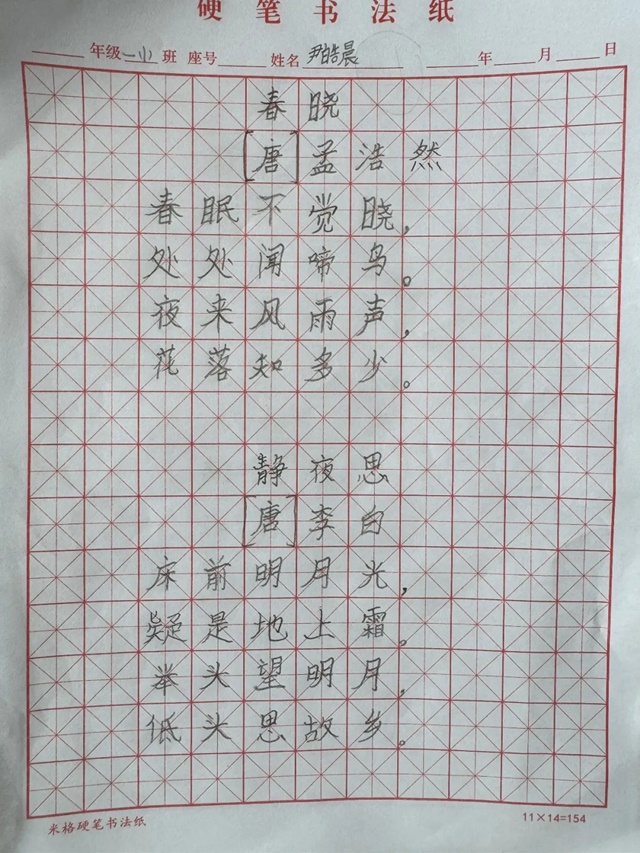 硬笔书法纸
年级一小班 座号 姓名尹皓晨 年 月 日
春晓
[唐]孟浩然
春眠不觉晓，
处处闻啼鸟。
夜来风雨声，
花落知多少。
静夜思
[唐]李白
床前明月光，
疑是地上霜。
举头望明月，
低头思故乡。
米格硬笔书法纸 11×14=154